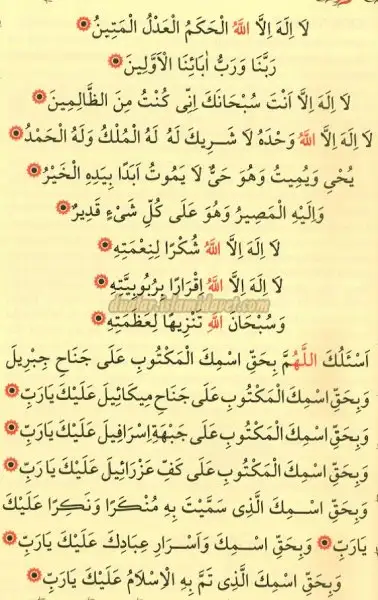 لَا اِلٰهَ اِلَّا اللّٰهُ الْحَكَمُ الْعَدْلُ الْمَتِينُ
رَبَّنَا وَرَبُّ اٰبَائِنَا الْاَوَّلِينَ
لَا اِلٰهَ اِلَّا اَنْتَ سُبْحَانَكَ اِنِّى كُنْتُ مِنَ الظَّالِمِينَ
لَا اِلٰهَ اِلَّا اللّٰهُ وَحْدَهُ لَا شَرِيكَ لَهُ لَهُ الْمُلْكُ وَلَهُ الْحَمْدُ
يُحْيِ وَيُمِيتُ وَهُوَ حَىٌّ لَا يَمُوتُ اَبَدًا بِيَدِهِ الْخَيْرُ
وَاِلَيْهِ الْمَصِيرُ وَهُوَ عَلَى كُلِّ شَىْءٍ قَدِيرٌ
لَا اِلٰهَ اِلَّا اللّٰهُ شُكْرًا لِنِعْمَتِهِ
لَا اِلٰهَ اِلَّا اللّٰهُ اِقْرَارًا بِرُبُوبِيَّتِهِ
dualar-islamidavet.com
وَسُبْحَانَ اللّٰهِ تَنْزِيهًا لِعَظَمَتِهِ
اَسْئَلُكَ اللّٰهُمَّ بِحَقِّ اسْمِكَ الْمَكْتُوبِ عَلَى جَنَاحِ جِبْرِيلَ
وَبِحَقِّ اسْمِكَ الْمَكْتُوبِ عَلَى جَنَاحِ مِيكَائِيلَ عَلَيْكَ يَارَبِّ
وَبِحَقِّ اسْمِكَ الْمَكْتُوبِ عَلَى جَبْهَةِ اِسْرَافِيلَ عَلَيْكَ يَارَبِّ
وَبِحَقِّ اسْمِكَ الْمَكْتُوبِ عَلَى كَفِّ عَزْرَائِيلَ عَلَيْكَ يَارَبِّ
وَبِحَقِّ اسْمِكَ الَّذِى سَمَّيْتَ بِهِ مُنْكَرًا وَنَكِرًا عَلَيْكَ
يَارَبِّ وَبِحَقِّ اسْمِكَ وَاَسْرَارِ عِبَادِكَ عَلَيْكَ يَارَبِّ
وَبِحَقِّ اسْمِكَ الَّذِى تَمَّ بِهِ الْاِسْلَامُ عَلَيْكَ يَارَبِّ